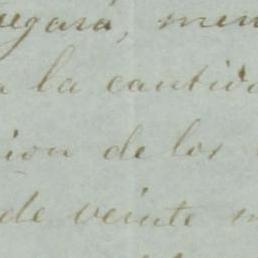 egará, men
a la cantid
ion de los
de veinte m